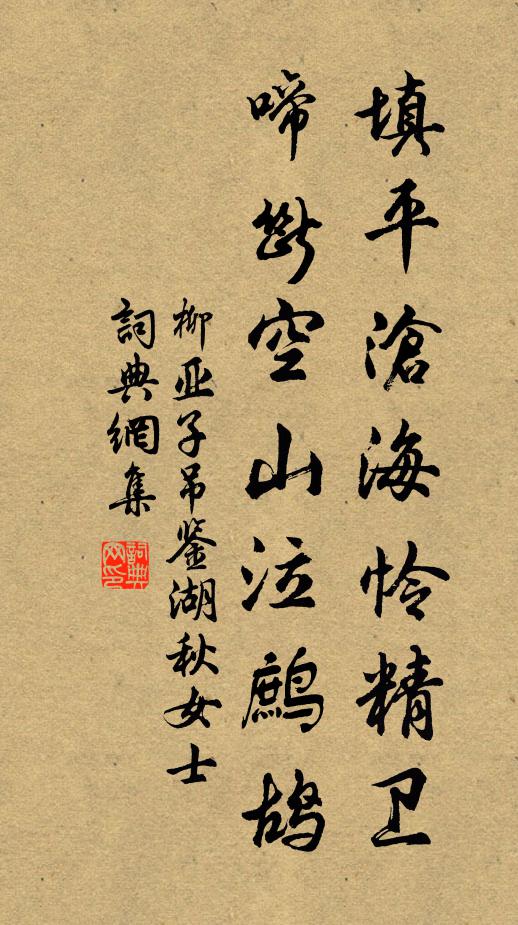 填平滄海怜精卫
啼断空山泣鷓鴣
柳亚子吊鉴湖秋女士
詞典網集
詞典
网印